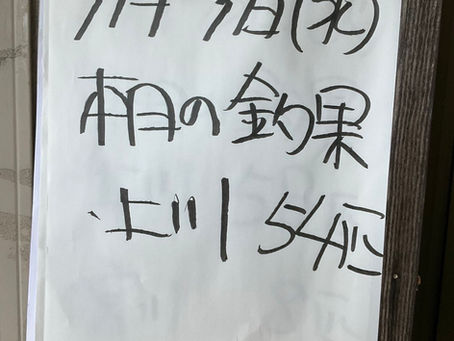 月 日(水)
本日の釣果
上川 54匹